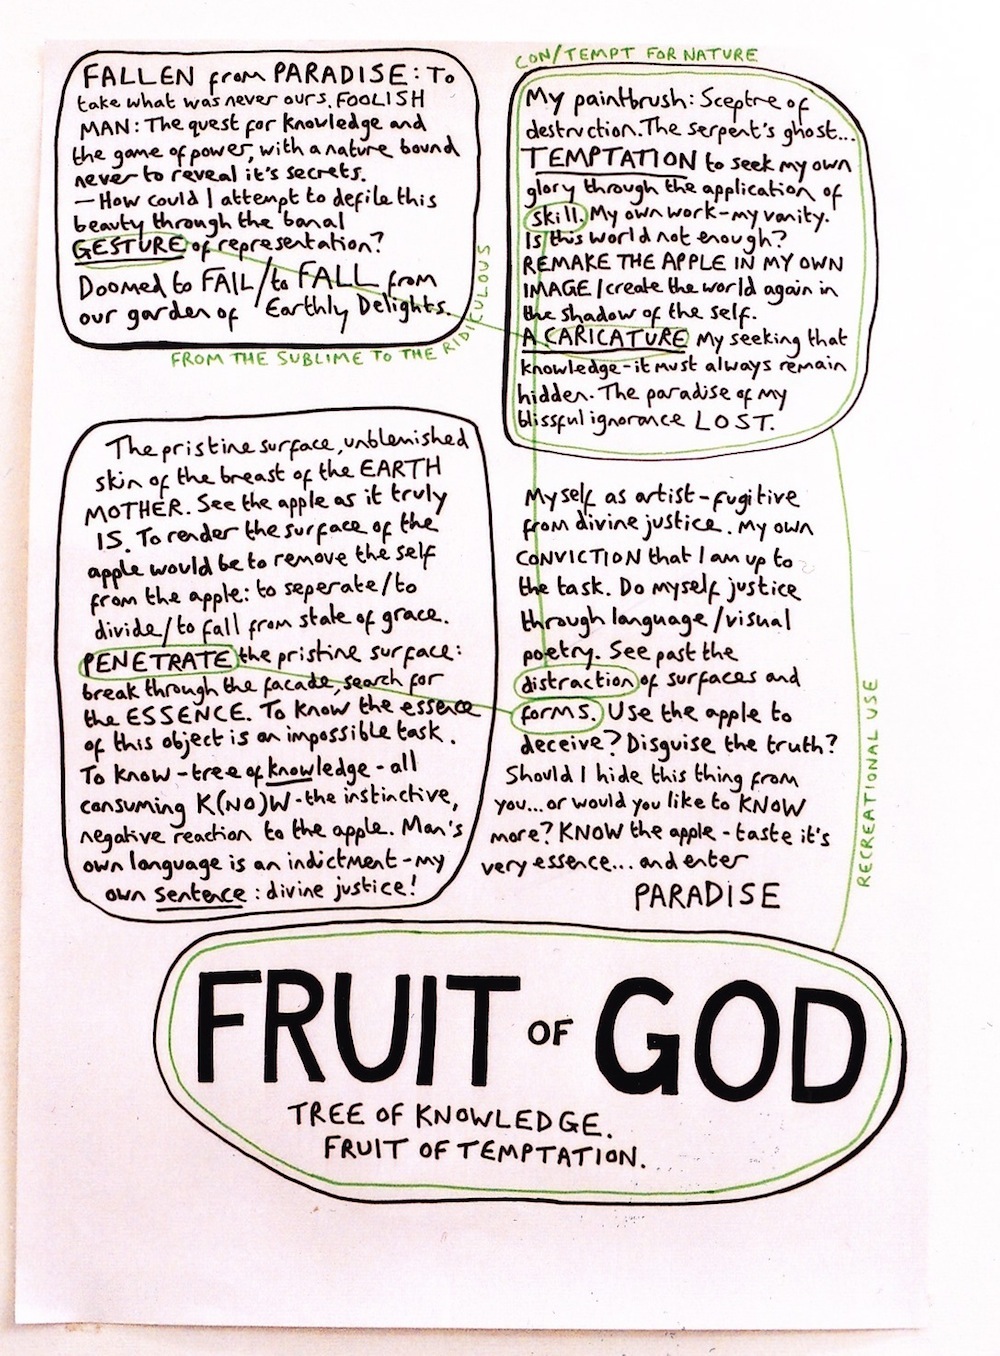 FALLEN from PARADISE: To
take what was never ours. FOOLISH
MAN: The quest for knowledge and
the game of power, with a nature bound
never to reveal it's secrets.
— How could I attempt to defile this
beauty through the banal
GESTURE of representation?
Doomed to FAIL/to FALL from
our garden of Earthly Delights.
FROM THE SUBLIME TO THE RIDICULOUS
CON/TEMPT FOR NATURE
My paintbrush: Sceptre of
destruction. The serpent's ghost...
TEMPTATION to seek my own
glory through the application of
skill. My own work - my vanity.
Is this world not enough?
REMAKE THE APPLE IN MY OWN
IMAGE/create the world again in
the shadow of the self.
A CARICATURE My seeking that
knowledge - it must always remain
hidden. The paradise of my
blissful ignorance LOST.
The pristine surface, unblemished
skin of the breast of the EARTH
MOTHER. See the apple as it truly
IS. To render the surface of the
apple would be to remove the self
from the apple: to seperate/to
divide/to fall from state of grace.
PENETRATE the pristine surface:
break through the facade, search for
the ESSENCE. To know the essence
of this object is an impossible task.
To know - tree of knowledge - all
consuming K(NO)W - the instinctive,
negative reaction to the apple. Man's
own language is an indictment - my
own sentence: divine justice!
Myself as artist - fugitive
from divine justice. My own
CONVICTION that I am up to
the task. Do myself justice
through language/visual
poetry. See past the
distraction of surfaces and
forms. Use the apple to
deceive? Disguise the truth?
Should I hide this thing from
you... or would you like to KNOW
more? KNOW the apple - taste it's
very essence... and enter
PARADISE
RECREATIONAL USE
FRUIT OF GOD
TREE OF KNOWLEDGE.
FRUIT OF TEMPTATION.